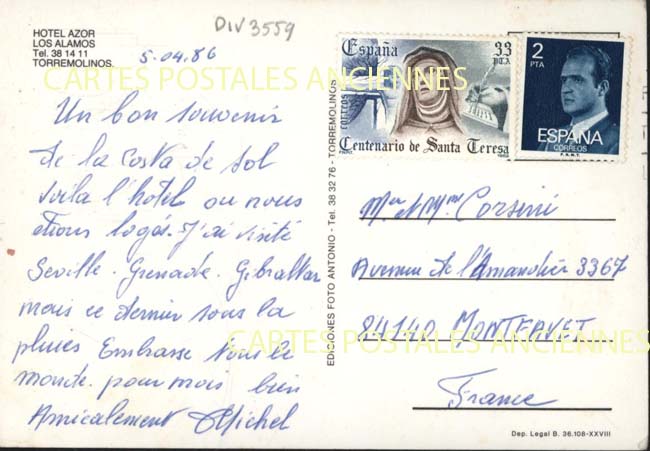 DIV3559
HOTEL AZOR
LOS ALAMOS
Tel. 38 14 11
TORREMOLINOS.
5.04.86
CARTES POSTALES ANCIENNES
Un bon souvenir
de la Costa de sol
voila l'hotel ou nous
etions logés. J'ai visité
Seville. Grenade. Gibraltar
mais ce dernier sous la
pluies Embrasse tous le
monde pour mois bien
Amicalement Michel
EDICIONES FOTO ANTONIO - Tel. 38 32 76 - TORREMOLINOS
España 33 PTA
CORREOS
Centenario de Santa Teresa
2
PTA
ESPAÑA
CORREOS
F.N.M.T.
Mr et Mme Corsini
Avenue de l'Amandier 3367
84140 MONTFAVET
France
CARTES POSTALES ANCIENNES
Dep. Legal B. 36.108-XXVIII